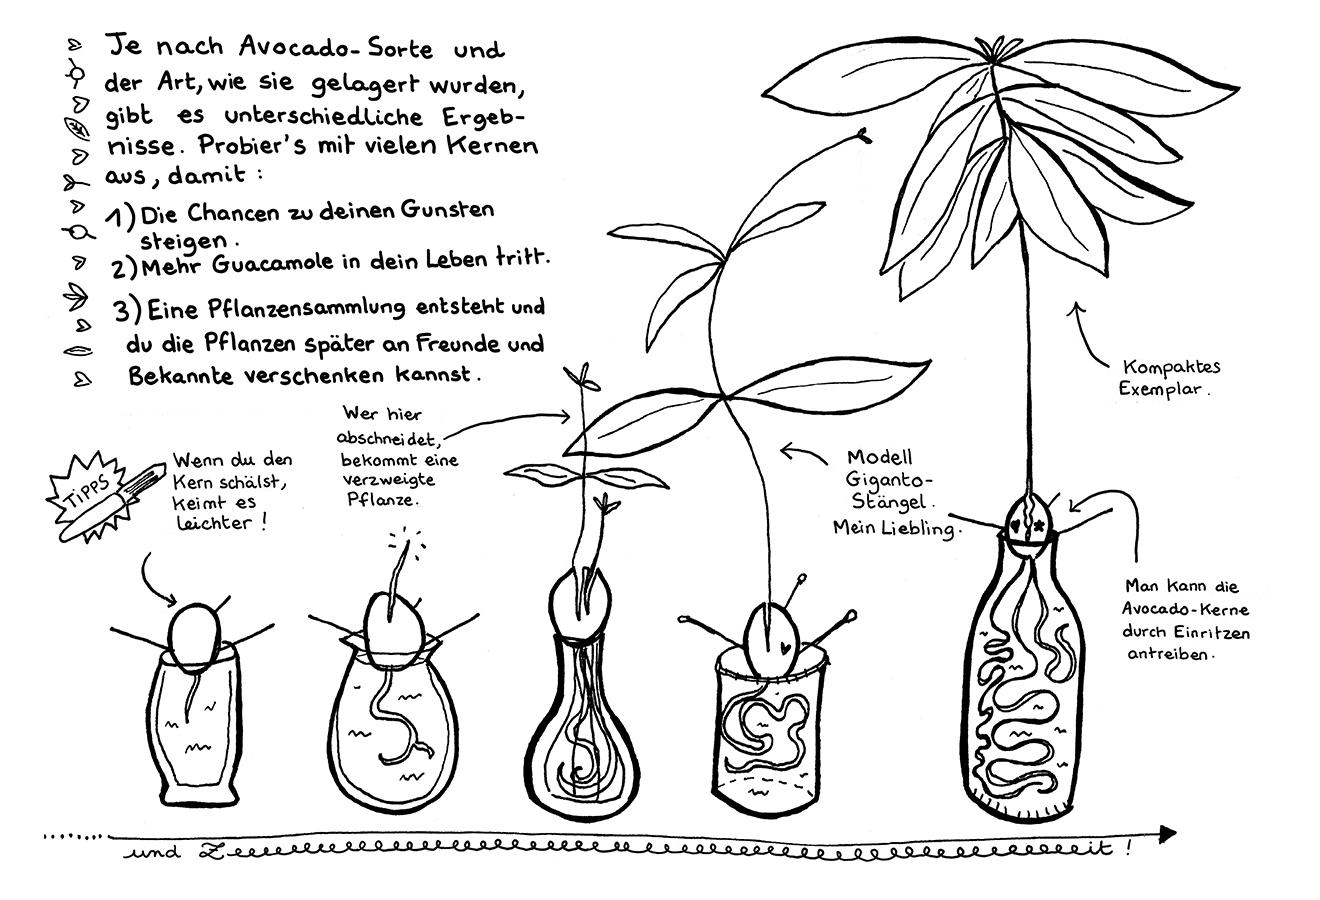 Je nach Avocado-Sorte und
der Art, wie sie gelagert wurden,
gibt es unterschiedliche Ergeb-
nisse. Probier's mit vielen Kernen
aus, damit:
1) Die Chancen zu deinen Gunsten
steigen.
2) Mehr Guacamole in dein Leben tritt.
3) Eine Pflanzensammlung entsteht und
du die Pflanzen später an Freunde und
Bekannte verschenken kannst.
TIPPS
Wenn du den
Kern schälst,
keimt es
leichter!
Wer hier
abschneidet,
bekommt eine
verzweigte
Pflanze.
Modell
Giganto-
Stängel.
Mein Liebling.
Kompaktes
Exemplar.
Man kann die
Avocado-Kerne
durch Einritzen
antreiben.
und Zeeeeeeeeeeeeeeeeeeeeeeeeeeeeeeeeeeeeeeeeeeeeit!